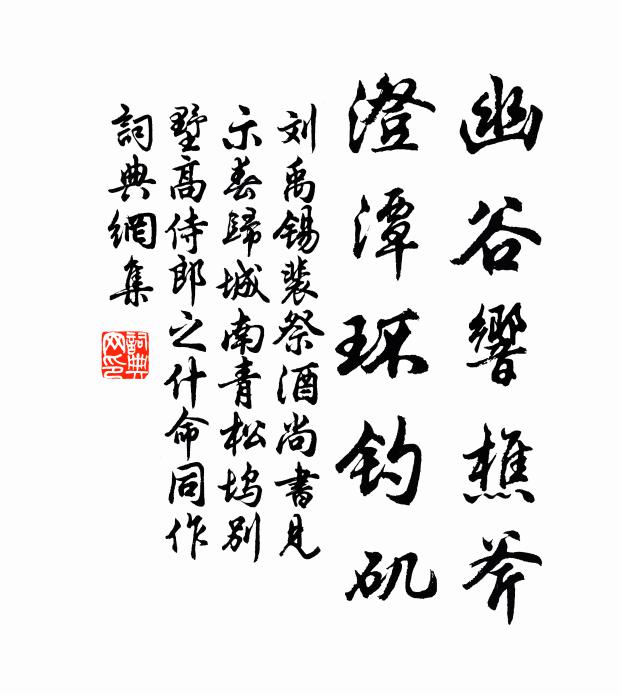 幽谷響樵斧
澄潭环钓矶
刘禹锡裴祭酒尚書見
示春歸城南青松坞别
墅高侍郎之什命同作
詞典網集
詞典网印